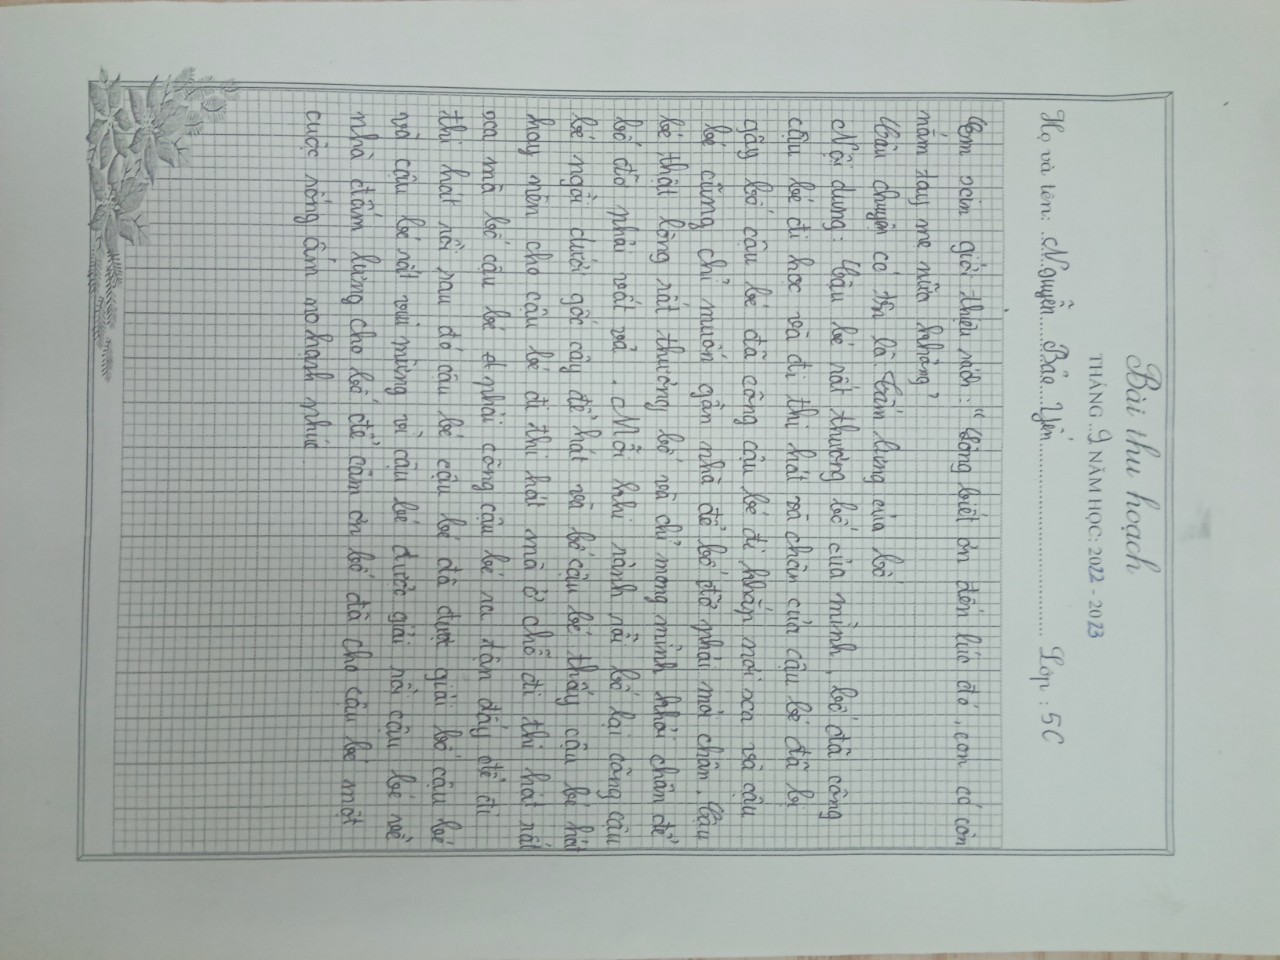 Bài thu hoạch
THÁNG..9 NĂM HỌC: 2022 - 2023
Họ và tên: .Nguyễn....Bảo...Yến........................... Lớp : 5C
Em xin giới thiệu sách: "Lòng biết ơn đến lúc đó, con có còn
nắm tay mẹ nữa không"
Câu chuyện có tên là: Tấm lưng của bố
Nội dung: Cậu bé rất thương bố của mình, bố đã cõng
cậu bé đi học và đi thi hát và chân của cậu bé đã bị
gãy bố cậu bé đã cõng cậu bé đi khắp nơi xa và cậu
bé cũng chỉ muốn gần nhà để bố đỡ phải mỏi chân. Cậu
bé thật lòng rất thương bố và chỉ mong mình khỏi chân để
bố đỡ phải vất vả. Mỗi khi rảnh rỗi bố lại cõng cậu
bé ngồi dưới gốc cây để hát và bố cậu bé thấy cậu bé hát
hay nên cho cậu bé đi thi hát mà ở chỗ đi thi hát rất
xa mà bố cậu bé phải cõng cậu bé ra tận đấy để đi
thi hát rồi sau đó cậu bé cậu bé đã được giải bố cậu bé
và cậu bé rất vui mừng vì cậu bé được giải rồi cậu bé về
nhà đấm lưng cho bố để cảm ơn bố đã cho cậu bé một
cuộc sống ấm no hạnh phúc.